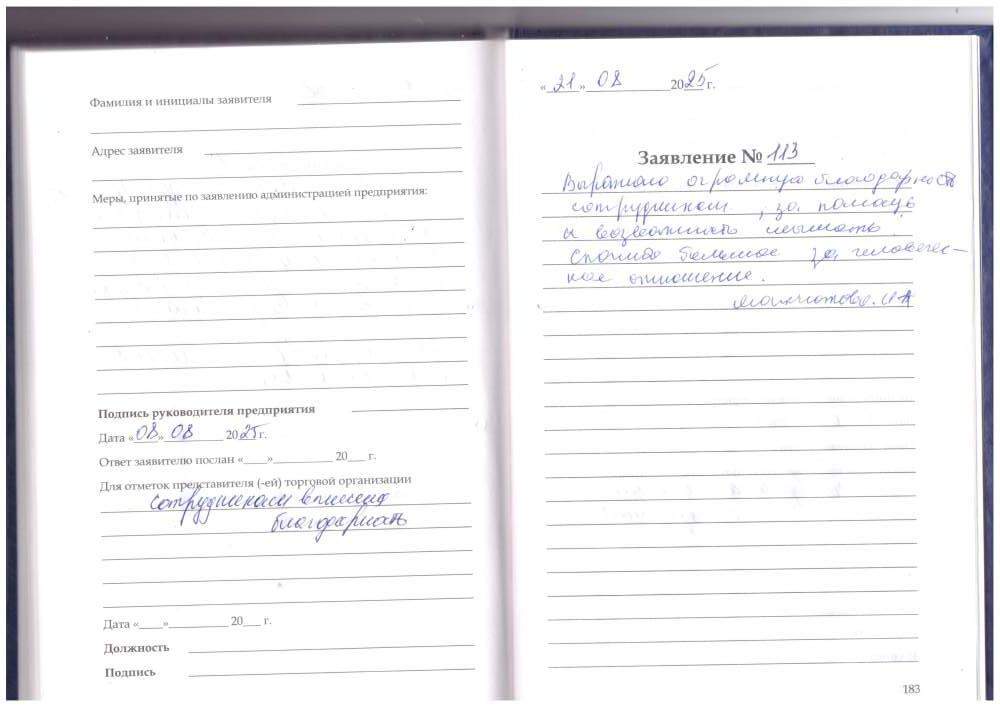 Фамилия и инициалы заявителя
Адрес заявителя
Меры, принятые по заявлению администрацией предприятия:
Подпись руководителя предприятия
Дата «08» 08 2025г.
Ответ заявителю послан «____»__________ 20___ г.
Для отметок представителя (-ей) торговой организации
сотрудникам
благодарность
Дата «____»__________ 20___ г.
Должность
Подпись
«21» 08 2025г.
Заявление № 113
Выражаю огромную благодарность
сотрудникам, за помощь
и возможность
Спасибо большое за человечес-
кое отношение.
183